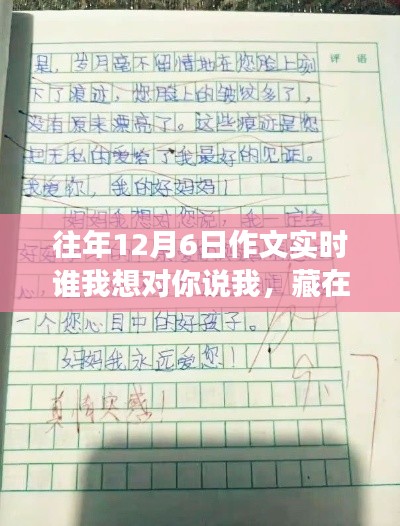 评语
里，岁月毫不留情地在您脸上刻
下了痕迹，您脸上的皱纹多了，
没有原来漂亮了。这些痕迹是您
无私的爱给了我最好的见证。
我爱你，我的好妈妈！
妈妈我想对您说，我一定会
往年12月6日作文实时
谁我想对你说我，藏在
一个您心目中的好孩子。
妈妈我永远爱您！
真情实感！